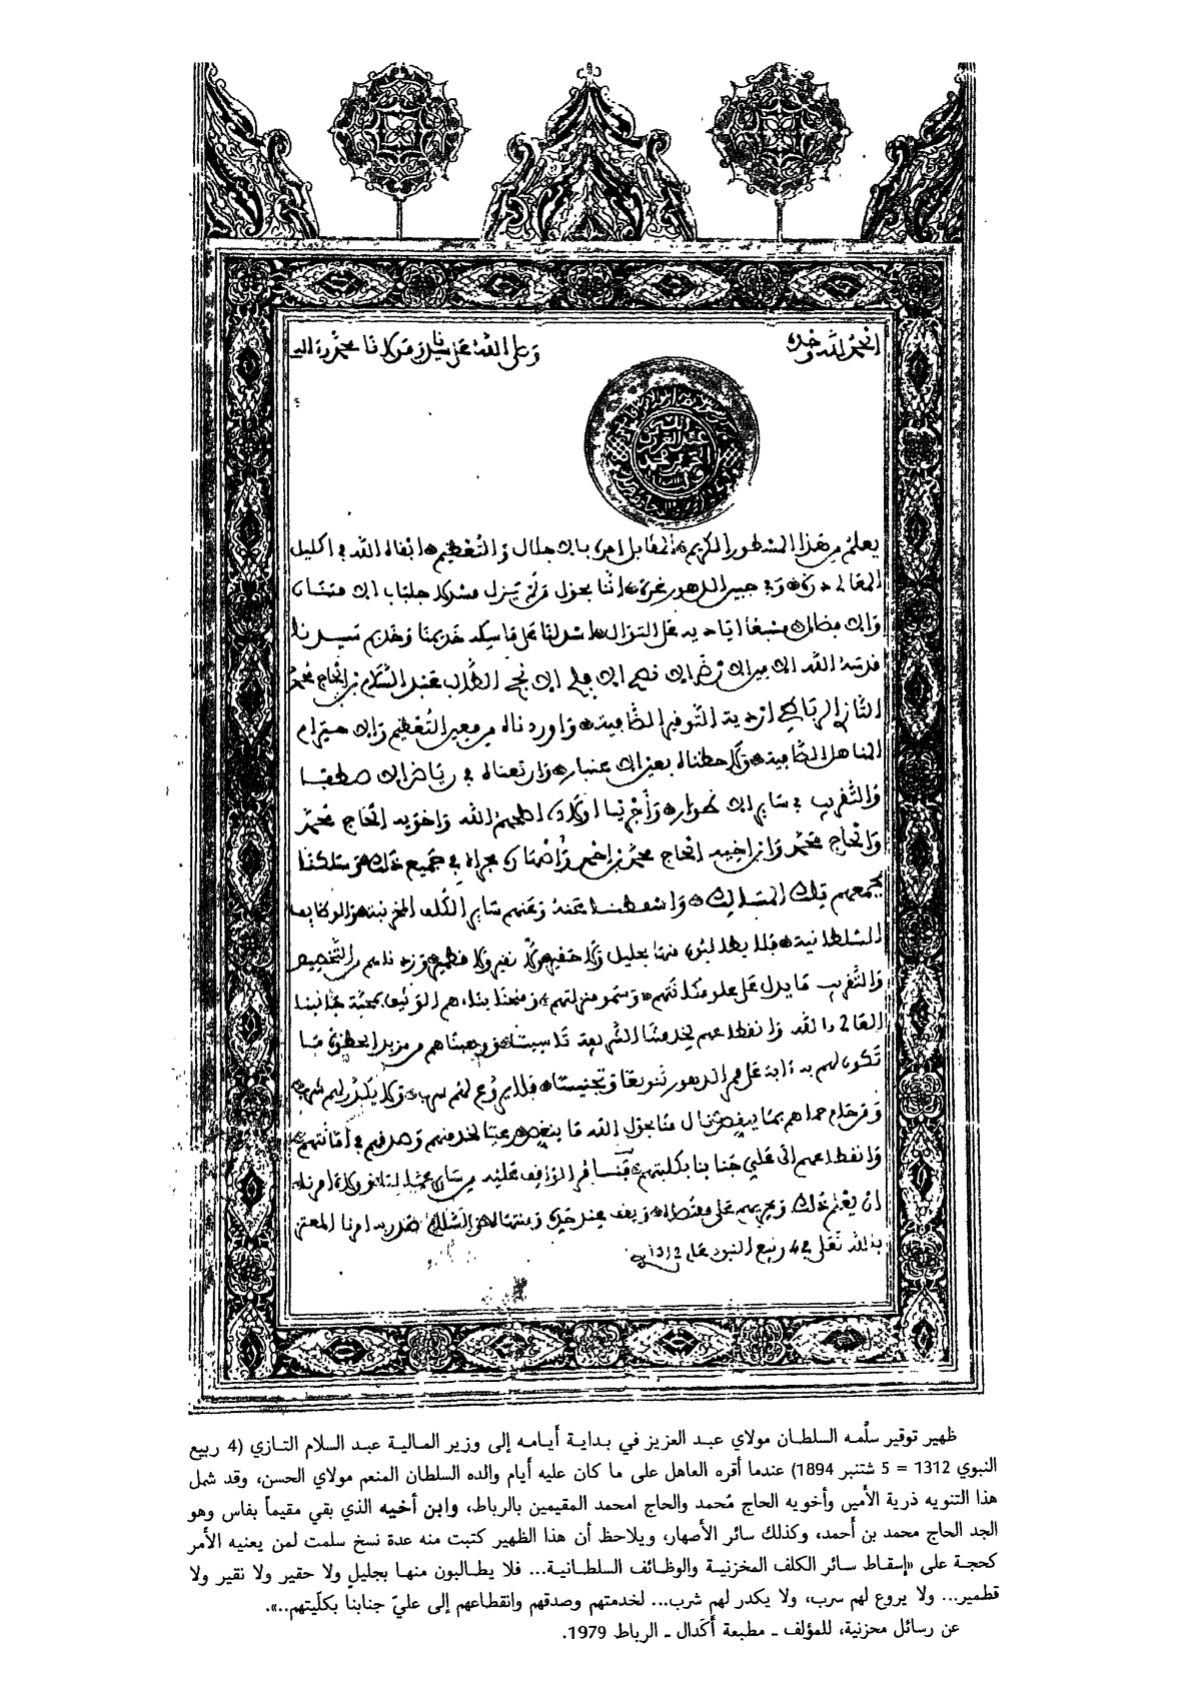 الحمد لله وحده
وصلى الله على سيدنا ومولانا محمد وآله
عبد العزيز
يعلم من هذا المسطور الكريم المقابل امره بالاجلال والتعظيم ابقاه الله في اكليل
المعالي درة وفي جبين الدهور غرة اننا بحول
على ماسكه خديمنا وخديم سيدنا
قدسه الله الامين الارضى الطالب عبد السلام بن الحاج محمد
التازي الرباطي اردية التوفير الضافية واوردناه من معين التعظيم والاحترام
المناهل الصافية ولاحظناه بعين الاعتبار وارتعناه في رياض الاصطفا
والتقريب في سائر الاطوار واجرينا اولاده اصلحهم الله واخويه الحاج محمد
والحاج محمد وابن اخيه الحاج محمد بن احمد واصهاره مجراه في جميع ذلك وسلكنا
بجميعهم تلك المسالك واسقطنا عنه وعنهم سائر الكلف المخزنية والوظايف
السلطانية فلا يطالبون منها بجليل ولا حقير ولا نقير ولا قطمير وزدناهم من التخصيص
والتقريب ما يدل على علو مكانتهم وسمو منزلتهم ومنحنا بناءهم الوثيق بمحبة جانبنا
العالي بالله وانقطاعهم لخدمتنا الشريفة تاسيسا ووهبناهم من مزيد الحظوة ما
تكون لهم به على ممر الدهور تنويعا وتجنيسا فلا يروع لهم سرب ولا يكدر لهم شرب
ومن حام حماهم بما ينال منا بحول الله ما رعيا لخدمتهم وصدقهم في امانتهم
وانقطاعهم الى علي جنابنا بكليتهم فنامر الواقف عليه من سائر عمالنا وولاة امرنا
ان يعلم ذلك ويجريهم على مقتضاه ويقف عند حده ومنتهاه والسلام صدر به امرنا المعتز
بالله تعالى في 4 ربيع النبوي عام 1312
ظهير توقير سلّمه السلطان مولاي عبد العزيز في بداية أيامه إلى وزير المالية عبد السلام التازي (4 ربيع
النبوي 1312 = 5 شتنبر 1894) عندما أقره العاهل على ما كان عليه أيام والده السلطان المنعم مولاي الحسن، وقد شمل
هذا التنويه ذرية الأمين وأخويه الحاج مُحمد والحاج امحمد المقيمين بالرباط، وابن أخيه الذي بقي مقيماً بفاس وهو
الجد الحاج محمد بن أحمد، وكذلك سائر الأصهار، ويلاحظ أن هذا الظهير كتبت منه عدة نسخ سلمت لمن يعنيه الأمر
كحجة على «إسقاط سائر الكلف المخزنية والوظائف السلطانية... فلا يطالبون منها بجليلٍ ولا حقير ولا نقير ولا
قطمير... ولا يروع لهم سرب، ولا يكدر لهم شرب... لخدمتهم وصدقهم وانقطاعهم إلى عليّ جنابنا بكلّيتهم..».
عن رسائل مخزنية، للمؤلف ـ مطبعة أكدال ـ الرباط 1979.